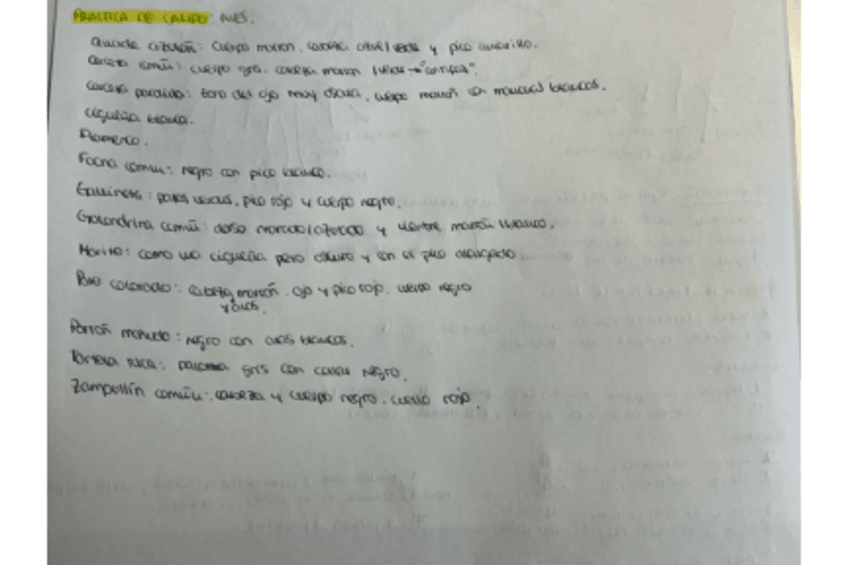 PRACTICA DE CAMPO: AVES.
Anade azulón: cuerpo marron, cabeza azul/verde y pico amarillo.
Cerceta común: cuerpo gris, cabeza marron (verde → "antifaz".
Cerceta pardilla: zona del ojo muy oscura, cuerpo marrón con manchas blancas.
Cigüeña blanca.
Flamenco.
Focha común: negro con pico blanco.
Gallineta: patas verdes, pico rojo y cuerpo negro.
Golondrina común: dorso morado/azulado y vientre marrón/blanco.
Morito: como una cigüeña pero oscuro y con el pico alargado
Pato colorado: cabeza marrón, ojo y pico rojo, cuerpo negro
y alas.
Porrón moñudo: negro con alas blancas.
Tórtola turca: paloma gris con collar negro.
Zampullín común: cabeza y cuerpo negro, cuello rojo.